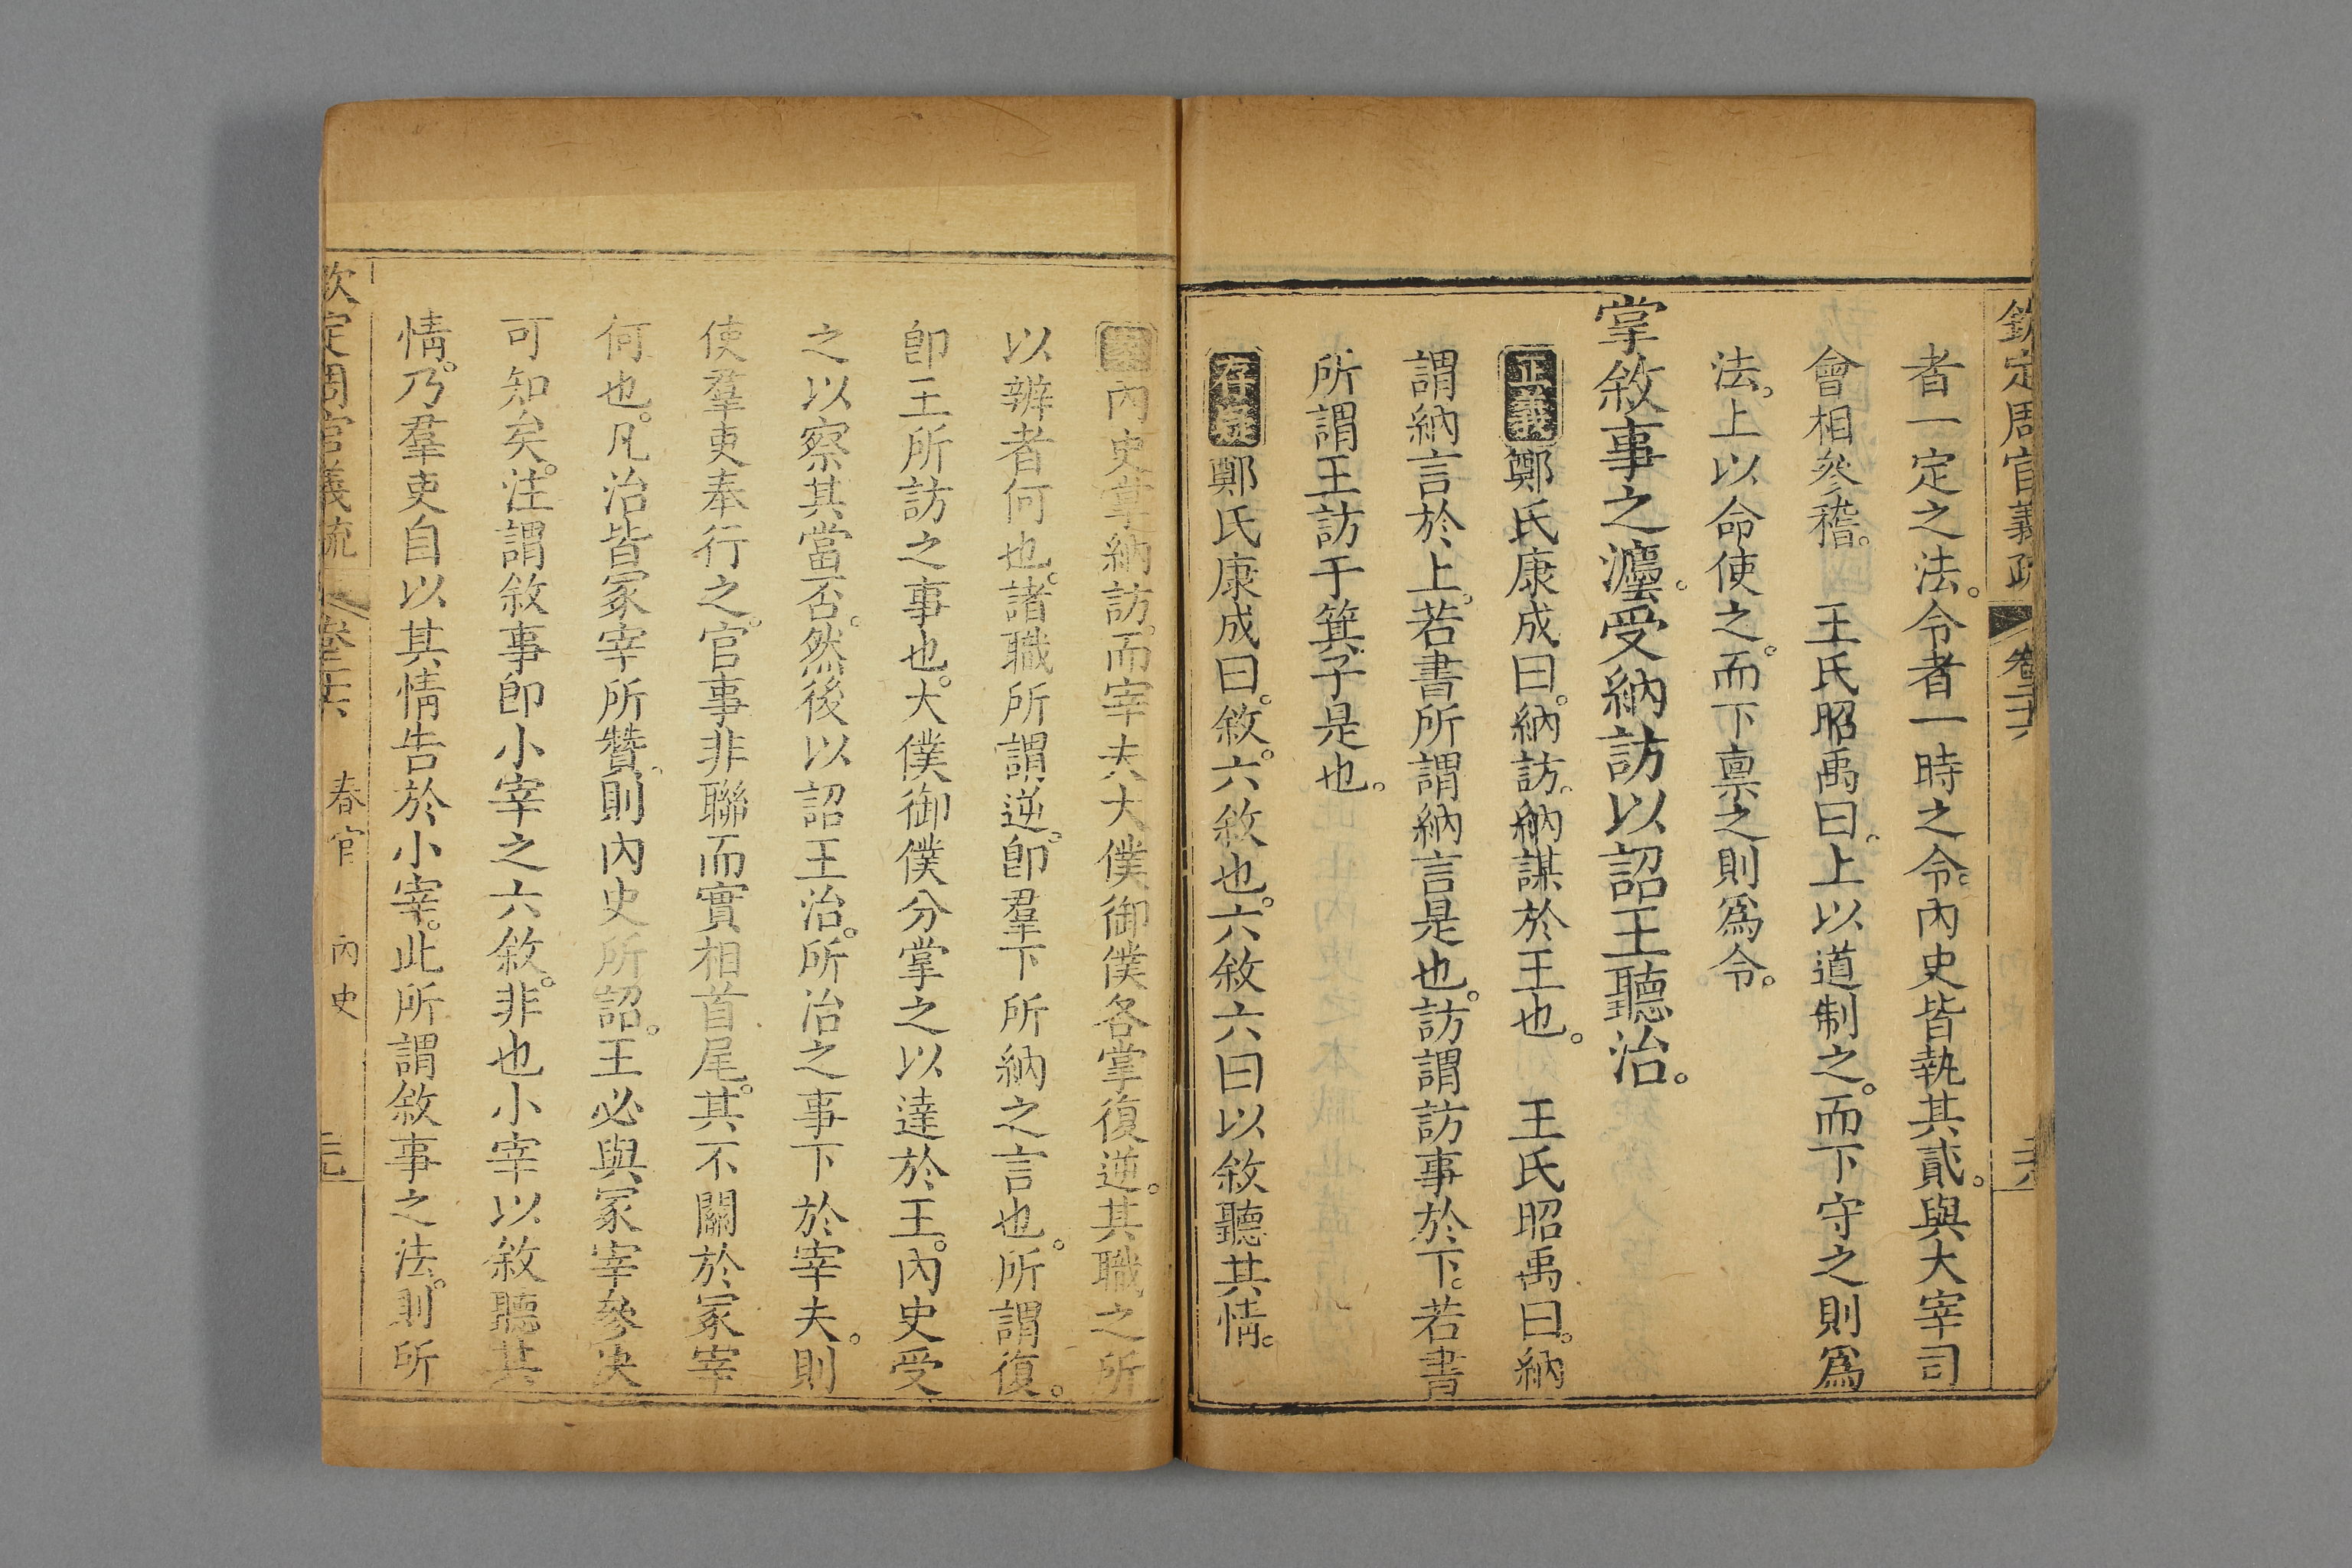 欽定周官義疏 卷二十六 二十八
者一定之法。令者一時之令。內史皆執其貳。與大宰司
會相參稽。 王氏昭禹曰。上以道制之。而下守之則爲
法。上以命使之。而下禀之則爲令。
掌敘事之灋。受納訪以詔王聽治。
正義鄭氏康成曰。納訪。納謀於王也。 王氏昭禹曰。納
謂納言於上。若書所謂納言是也。訪謂訪事於下。若書
所謂王訪于箕子是也。
存疑鄭氏康成曰。敘。六敘也。六敘六曰以敘聽其情。
案內史掌納訪。而宰夫大僕御僕各掌復逆。其職之所
以辨者何也。諸職所謂逆。卽羣下所納之言也。所謂復。
卽王所訪之事也。大僕御僕分掌之以達於王。內史受
之以察其當否。然後以詔王治。所治之事下於宰夫。則
使羣吏奉行之。官事非聯而實相首尾。其不關於冢宰
何也。凡治皆冢宰所贊。則內史所詔。王必與冢宰參決
可知矣。注謂敘事卽小宰之六敘。非也小宰以敘聽其
情。乃羣吏自以其情告於小宰。此所謂敘事之法。則所
欽定周官義疏 卷二十六 春官 內史 二十九